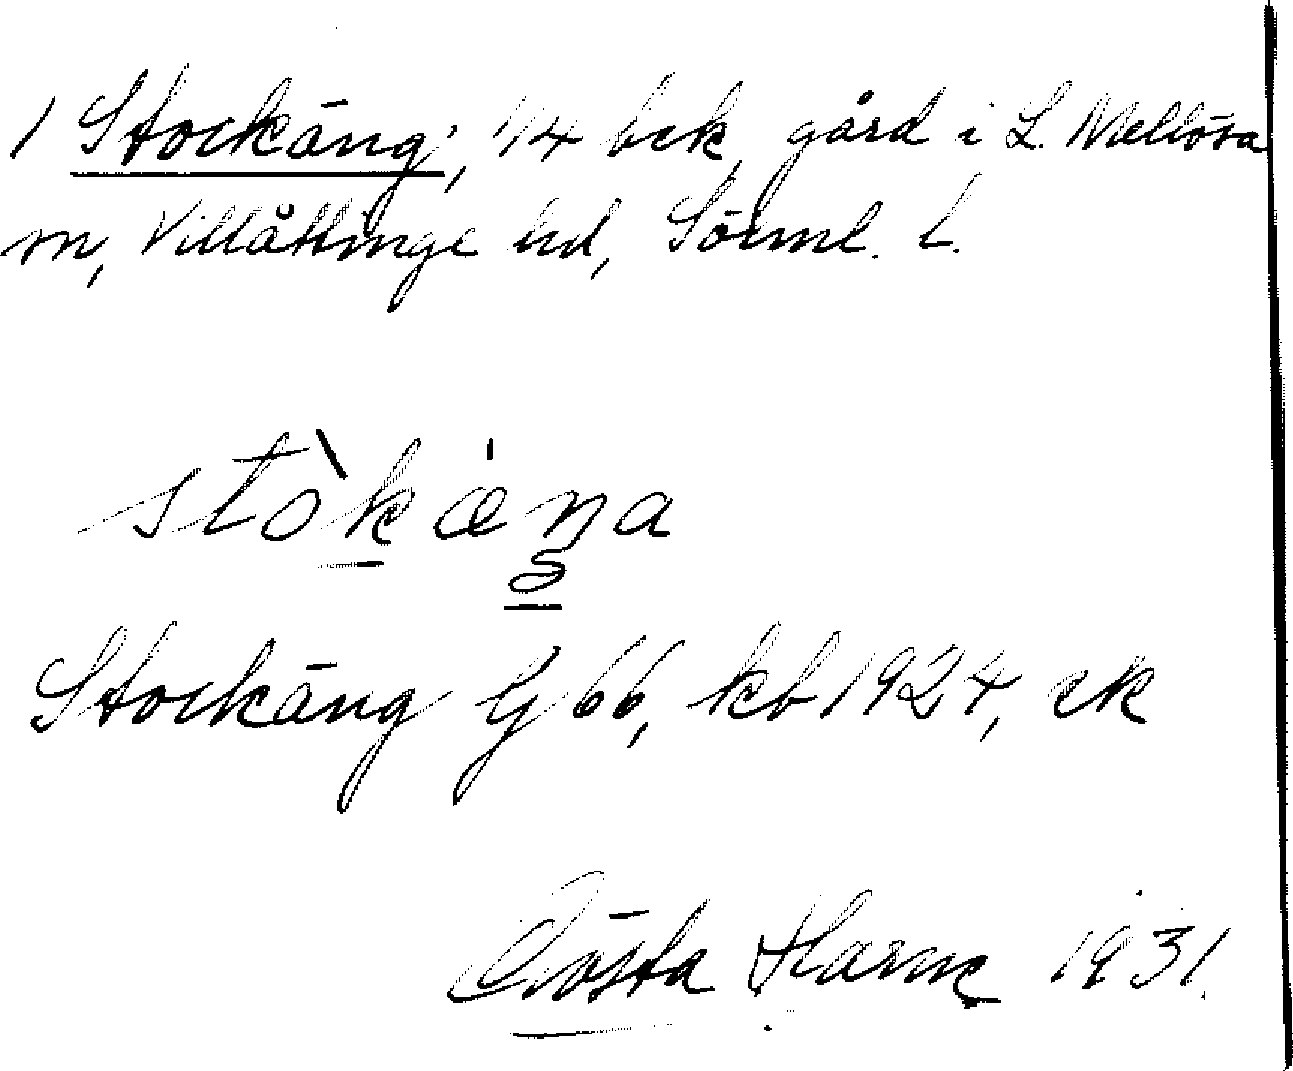 1 Stockäng, 1/4 bek, gård i L. Mellösa
sn, Villåttinge hd, Sörml. L.
stòkæŋa
Stockäng Gj 66, kb 1924, ek
Gösta Harne 1931.